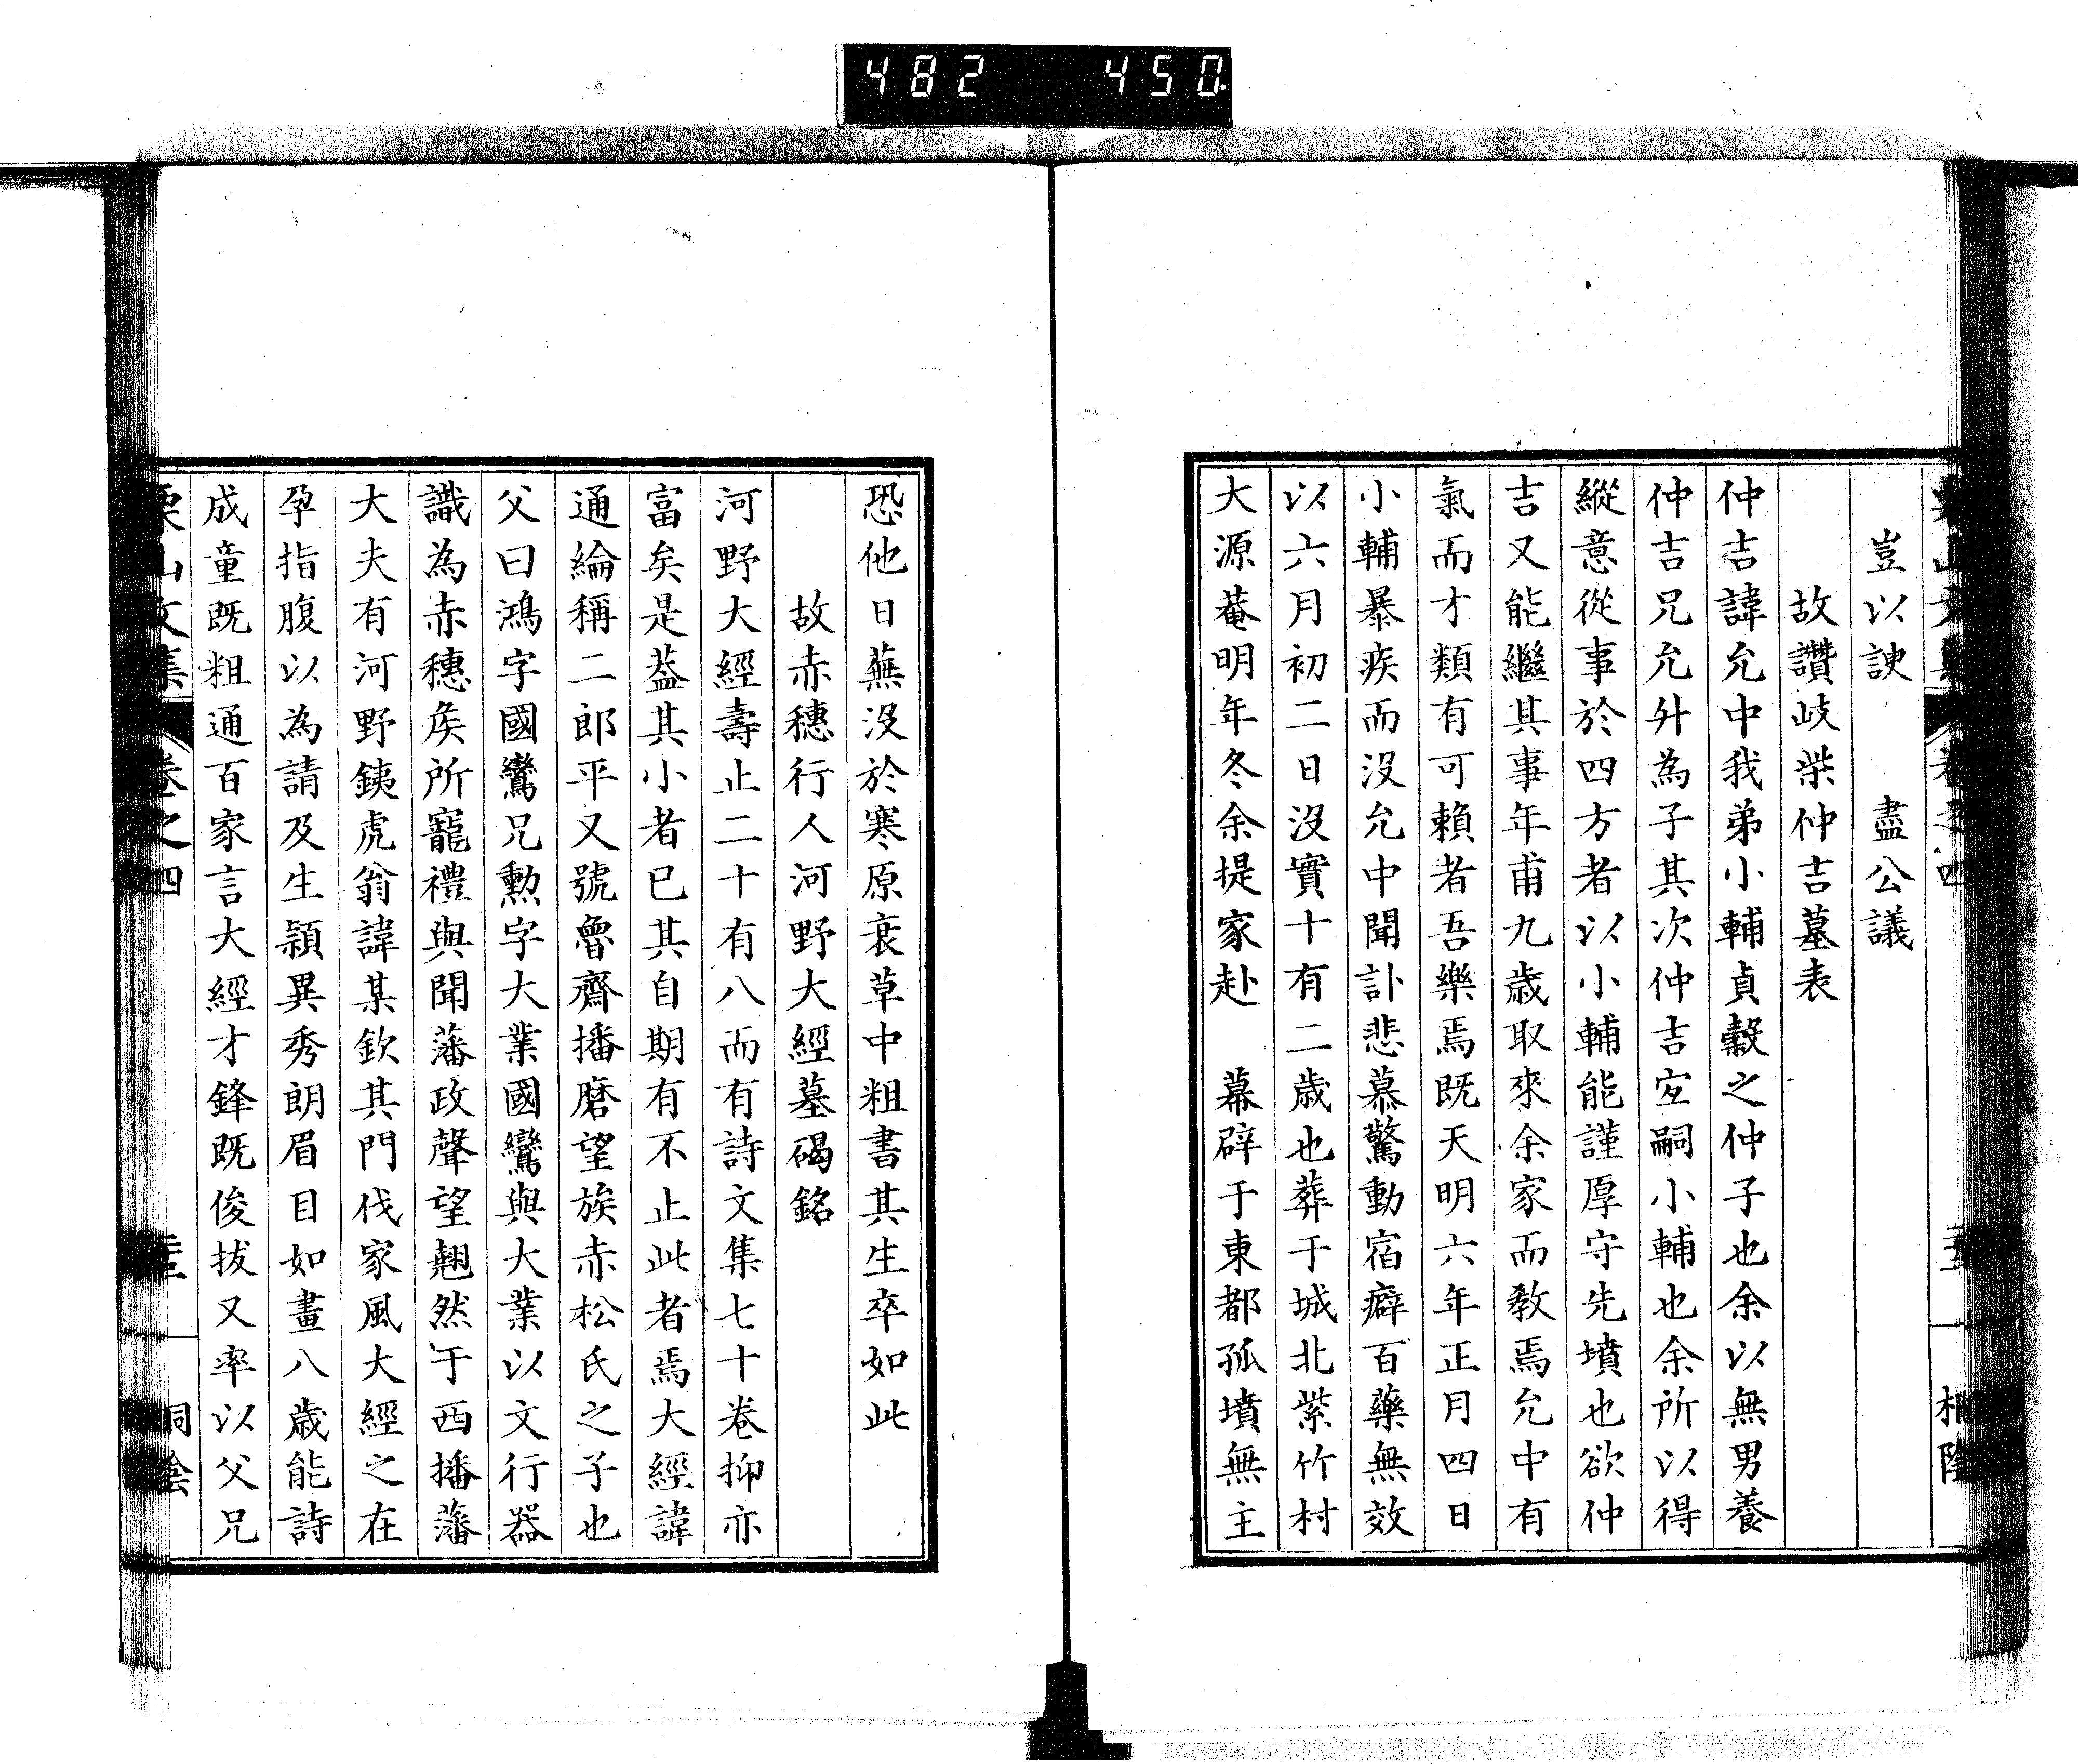 482 450
豈以諛 盡公議
故讚岐柴仲吉墓表
仲吉諱允中我弟小輔貞穀之仲子也余以無男養
仲吉兄允升為子其次仲吉宜嗣小輔也余所以得
縱意從事於四方者以小輔能謹厚守先墳也欲仲
吉又能繼其事年甫九歲取來余家而教焉允中有
氣而才類有可賴者吾樂焉既天明六年正月四日
小輔暴疾而沒允中聞訃悲慕驚動宿癖百藥無效
以六月初二日沒實十有二歲也葬于城北紫竹村
大源菴明年冬余提家赴 幕辟于東都孤墳無主
恐他日蕪沒於寒原衰草中粗書其生卒如此
故赤穗行人河野大經墓碣銘
河野大經壽止二十有八而有詩文集七十卷抑亦
富矣是葢其小者已其自期有不止此者焉大經諱
通綸稱二郎平又號魯齋播磨望族赤松氏之子也
父曰鴻字國鸞兄勳字大業國鸞與大業以文行器
識為赤穗矦所寵禮與聞藩政聲望翹然于西播藩
大夫有河野銕虎翁諱某欽其門伐家風大經之在
孕指腹以為請及生穎異秀朗眉目如畫八歲能詩
成童既粗通百家言大經才鋒既俊拔又率以父兄
栗山文集 卷之四